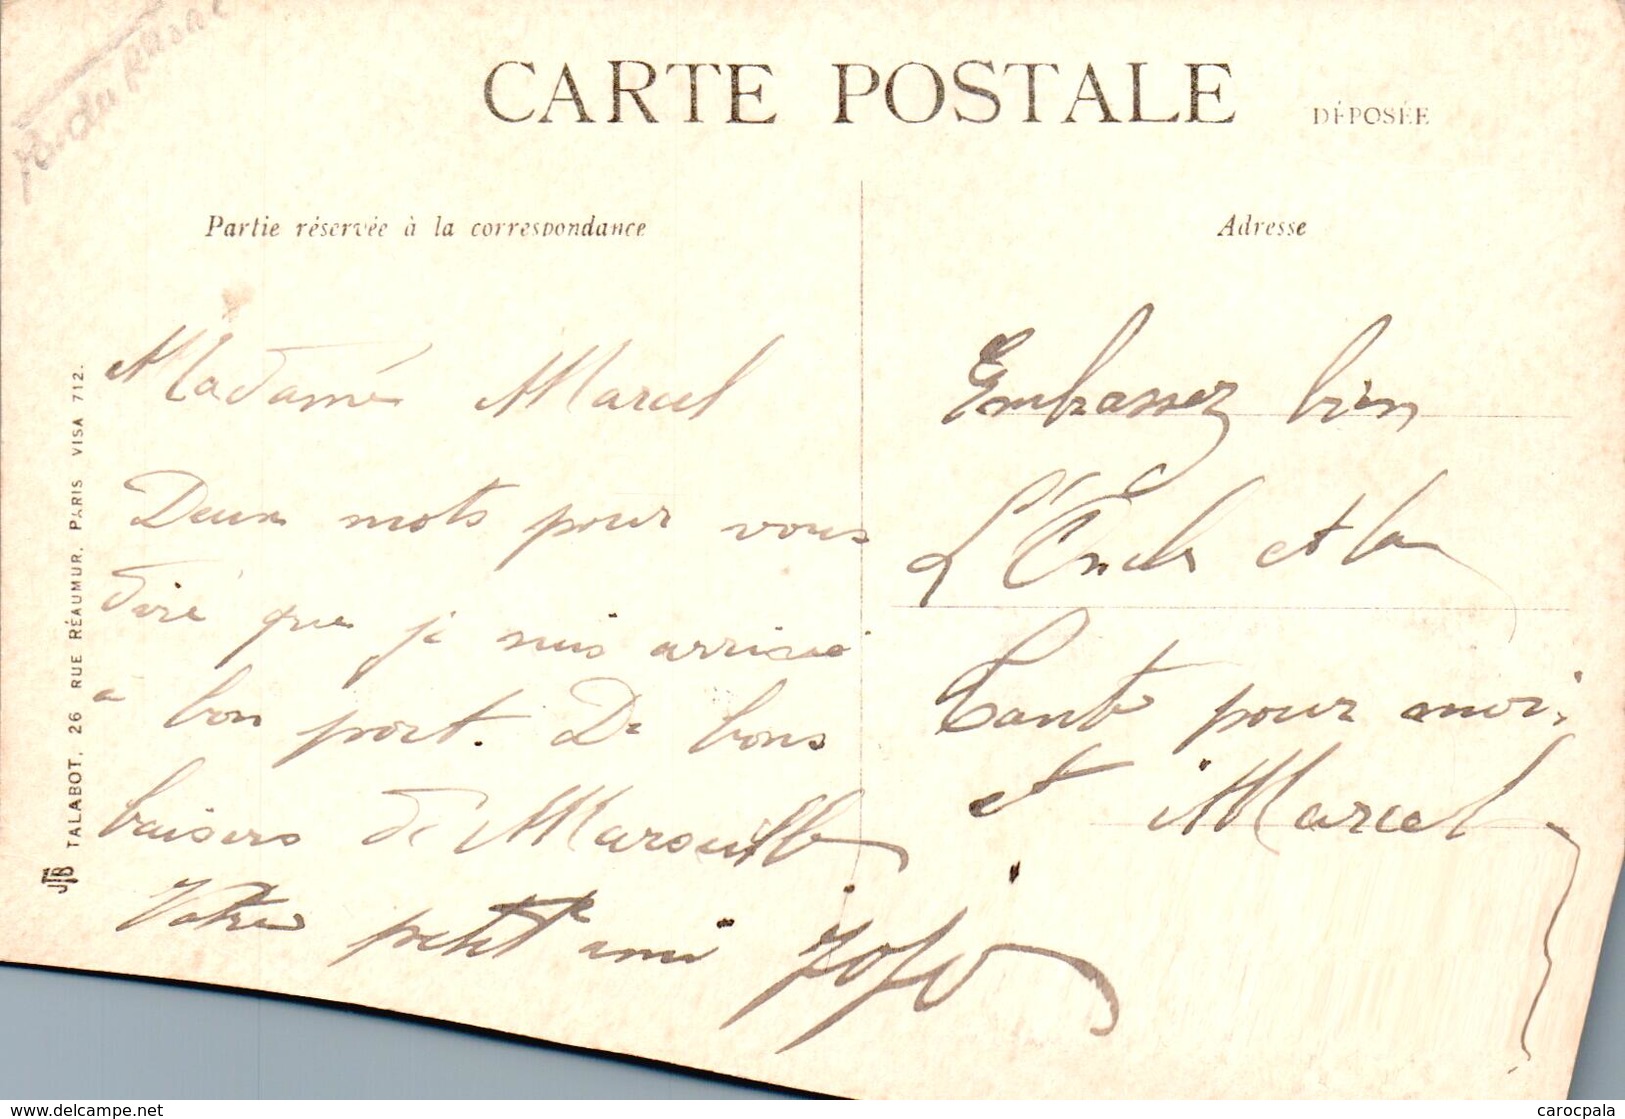 CARTE POSTALE DÉPOSÉE
Partie réservée à la correspondance
Adresse
Madame Marcel
Deux mots pour vous
dire que je suis arrivé
a bon port. De bons
baisers de Marseille
Votre petit ami
Embrassez bien
L'Oncle et la
Tante pour moi,
et Marcel
JTB TALABOT, 26 RUE RÉAUMUR, PARIS VISA 712.
www.delcampe.net
carocpala